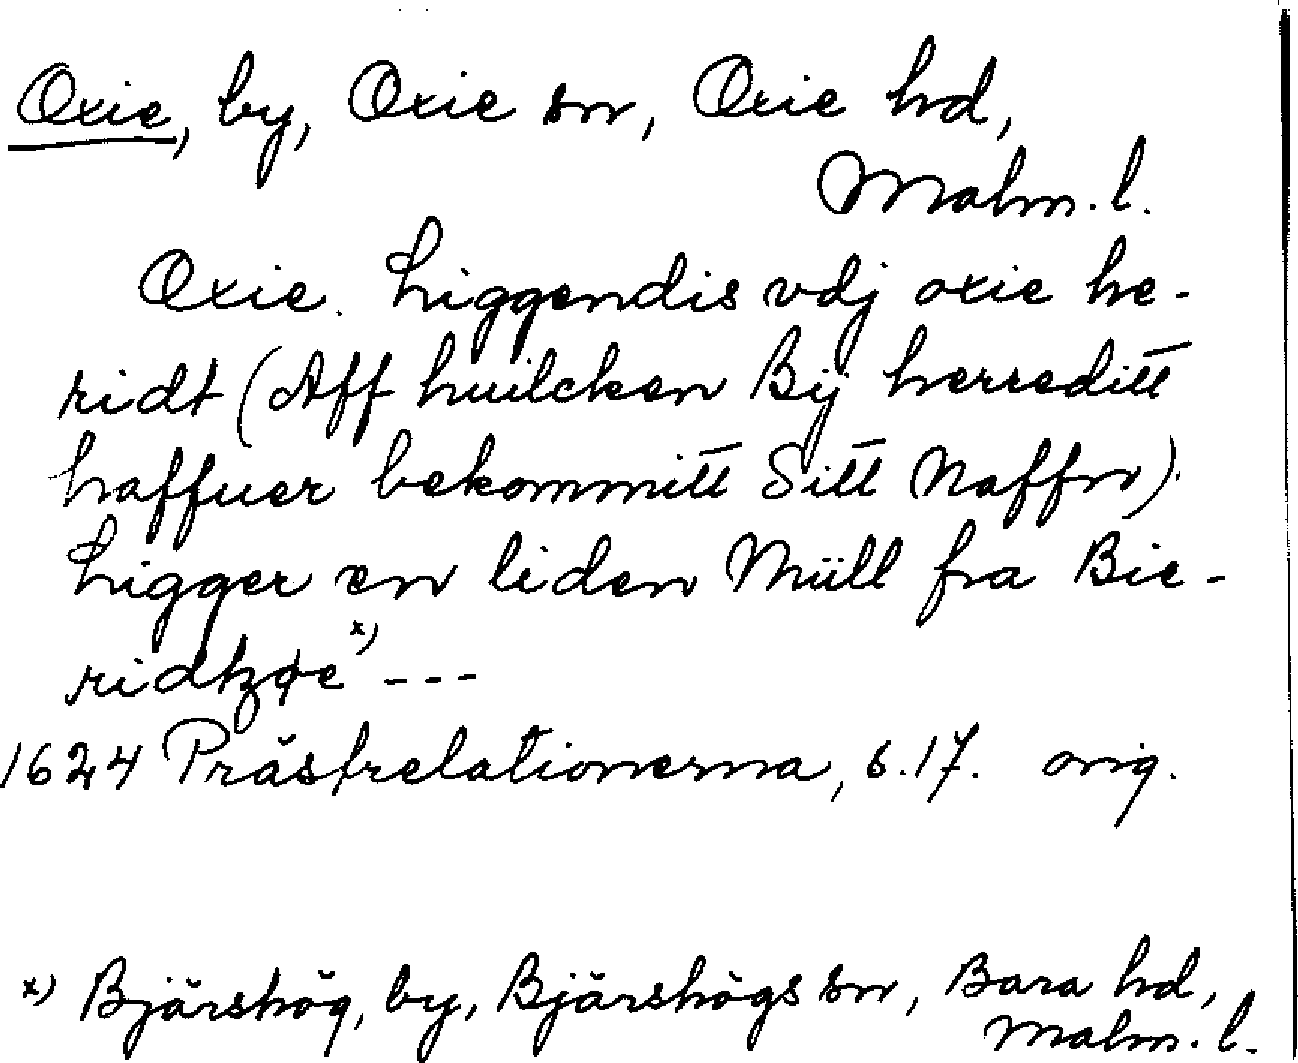 Oxie, by, Oxie sn, Oxie hd,
Malm. l.
Oxie. Liggendis vdj oxie he-
ridt (Aff huilcken Bÿ herreditt
haffuer bekommitt Sitt Naffn).
Ligger en liden Müll fra Bie-
ridtzøe x) ---
1624 Prästrelationerna, s. 17. orig.
x) Bjärshög, by, Bjärshögs sn, Bara hd,
Malm. l.